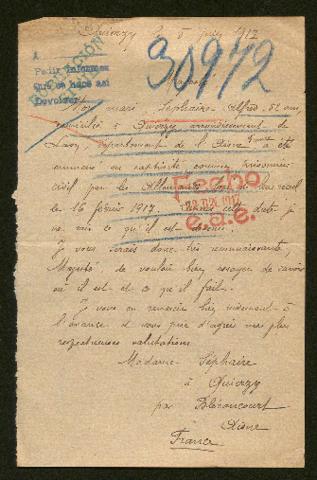 Quierzy le 8 juin 1917
30972
A
Pedir informes
Que se hace así
Devolver
Mon mari Séphaire Alfred, 52 ans,
domicilié à Quierzy arrondissement de
Laon, département de l'Aisne a été
emmené en captivité comme prisonnier
civil par les Allemands lors de leur recul
le 16 février 1917. Depuis cette date je
ne sais ce qu'il est devenu.
Je vous serais donc très reconnaissante,
Majesté de vouloir bien essayer de savoir
où il est et ce qu'il fait.
Je vous en remercie bien vivement à
l'avance et vous prie d'agréer mes plus
respectueuses salutations.
Fecho
1917
Madame Séphaire
à Quierzy
par Blérancourt
Aisne
France